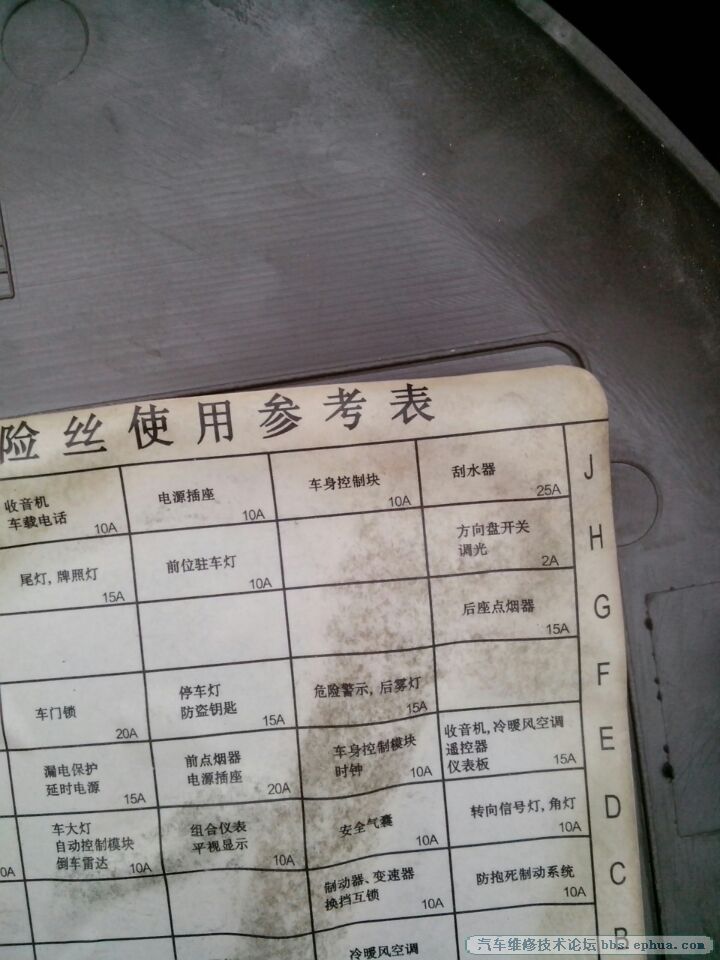 险丝使用参考表
收音机
车载电话 10A
电源插座 10A
车身控制块 10A
刮水器 25A
J
尾灯, 牌照灯 15A
前位驻车灯 10A
方向盘开关
调光 2A
H
后座点烟器 15A
G
车门锁 20A
停车灯
防盗钥匙 15A
危险警示, 后雾灯 15A
F
漏电保护
延时电源 15A
前点烟器
电源插座 20A
车身控制模块
时钟 10A
收音机, 冷暖风空调
遥控器
仪表板 15A
E
0A
车大灯
自动控制模块
倒车雷达 10A
组合仪表
平视显示 10A
安全气囊 10A
转向信号灯, 角灯 10A
D
制动器、变速器
换挡互锁 10A
防抱死制动系统 10A
C
冷暖风空调
B
汽车维修技术论坛 bbs.ephua.com